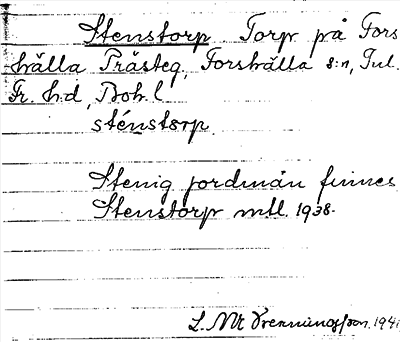 Stenstorp Torp på Fors
hälla Prästeg, Forshälla s:n, Tul.
Fr. h:d, Boh. l
sténstorp.
Stenig jordmån finnes
Stenstorp mtl. 1938.
L. M. 1941